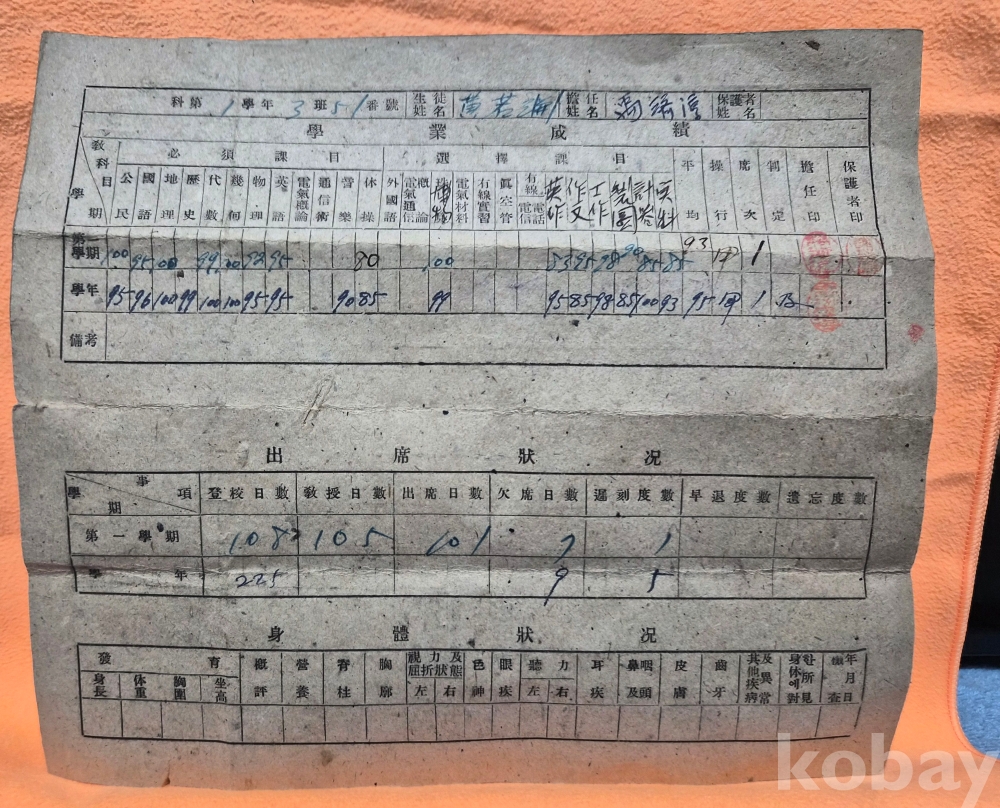 科第 1 學年 3 班 51 番號 生徒姓名 擔任姓名 保護者姓名
學業成績
敎科目 學期 必須課目 選擇課目 平均 操行 席次 判定 擔任印 保護者印
公民 國語 地理 歷史 代數 幾何 物理 英語 電氣槪論 通信術 音樂 体操 外國語 電氣通信槪論 電氣材料 有線實習 眞空管 有線電信電話 英作 作文 製圖
第一學期 100 95 100 99 100 92 95 80 100 83 95 98 90 85 85 93 甲 1
學年 95 96 100 99 100 100 95 95 90 85 99 95 85 98 85 100 93 95 甲 1
備考
出席狀况
事項 學期 登校日數 敎授日數 出席日數 欠席日數 遲刻度數 早退度數 遺忘度數
第一學期 108 105 101 7 1
學年 225 9 5
身體狀况
發育 槪評 營養 脊柱 胸廓 視力及屈折狀態 色神 眼疾 聽力 耳疾 鼻及咽頭 皮膚 齒牙 其他疾病及異常 身体에對한所見 年月日
身長 体重 胸圍 坐高 左 右 左 右
kobay